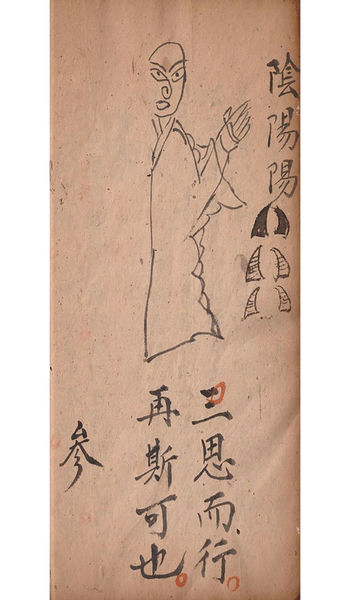 陰陽陽
三思而行
再斯可也
参